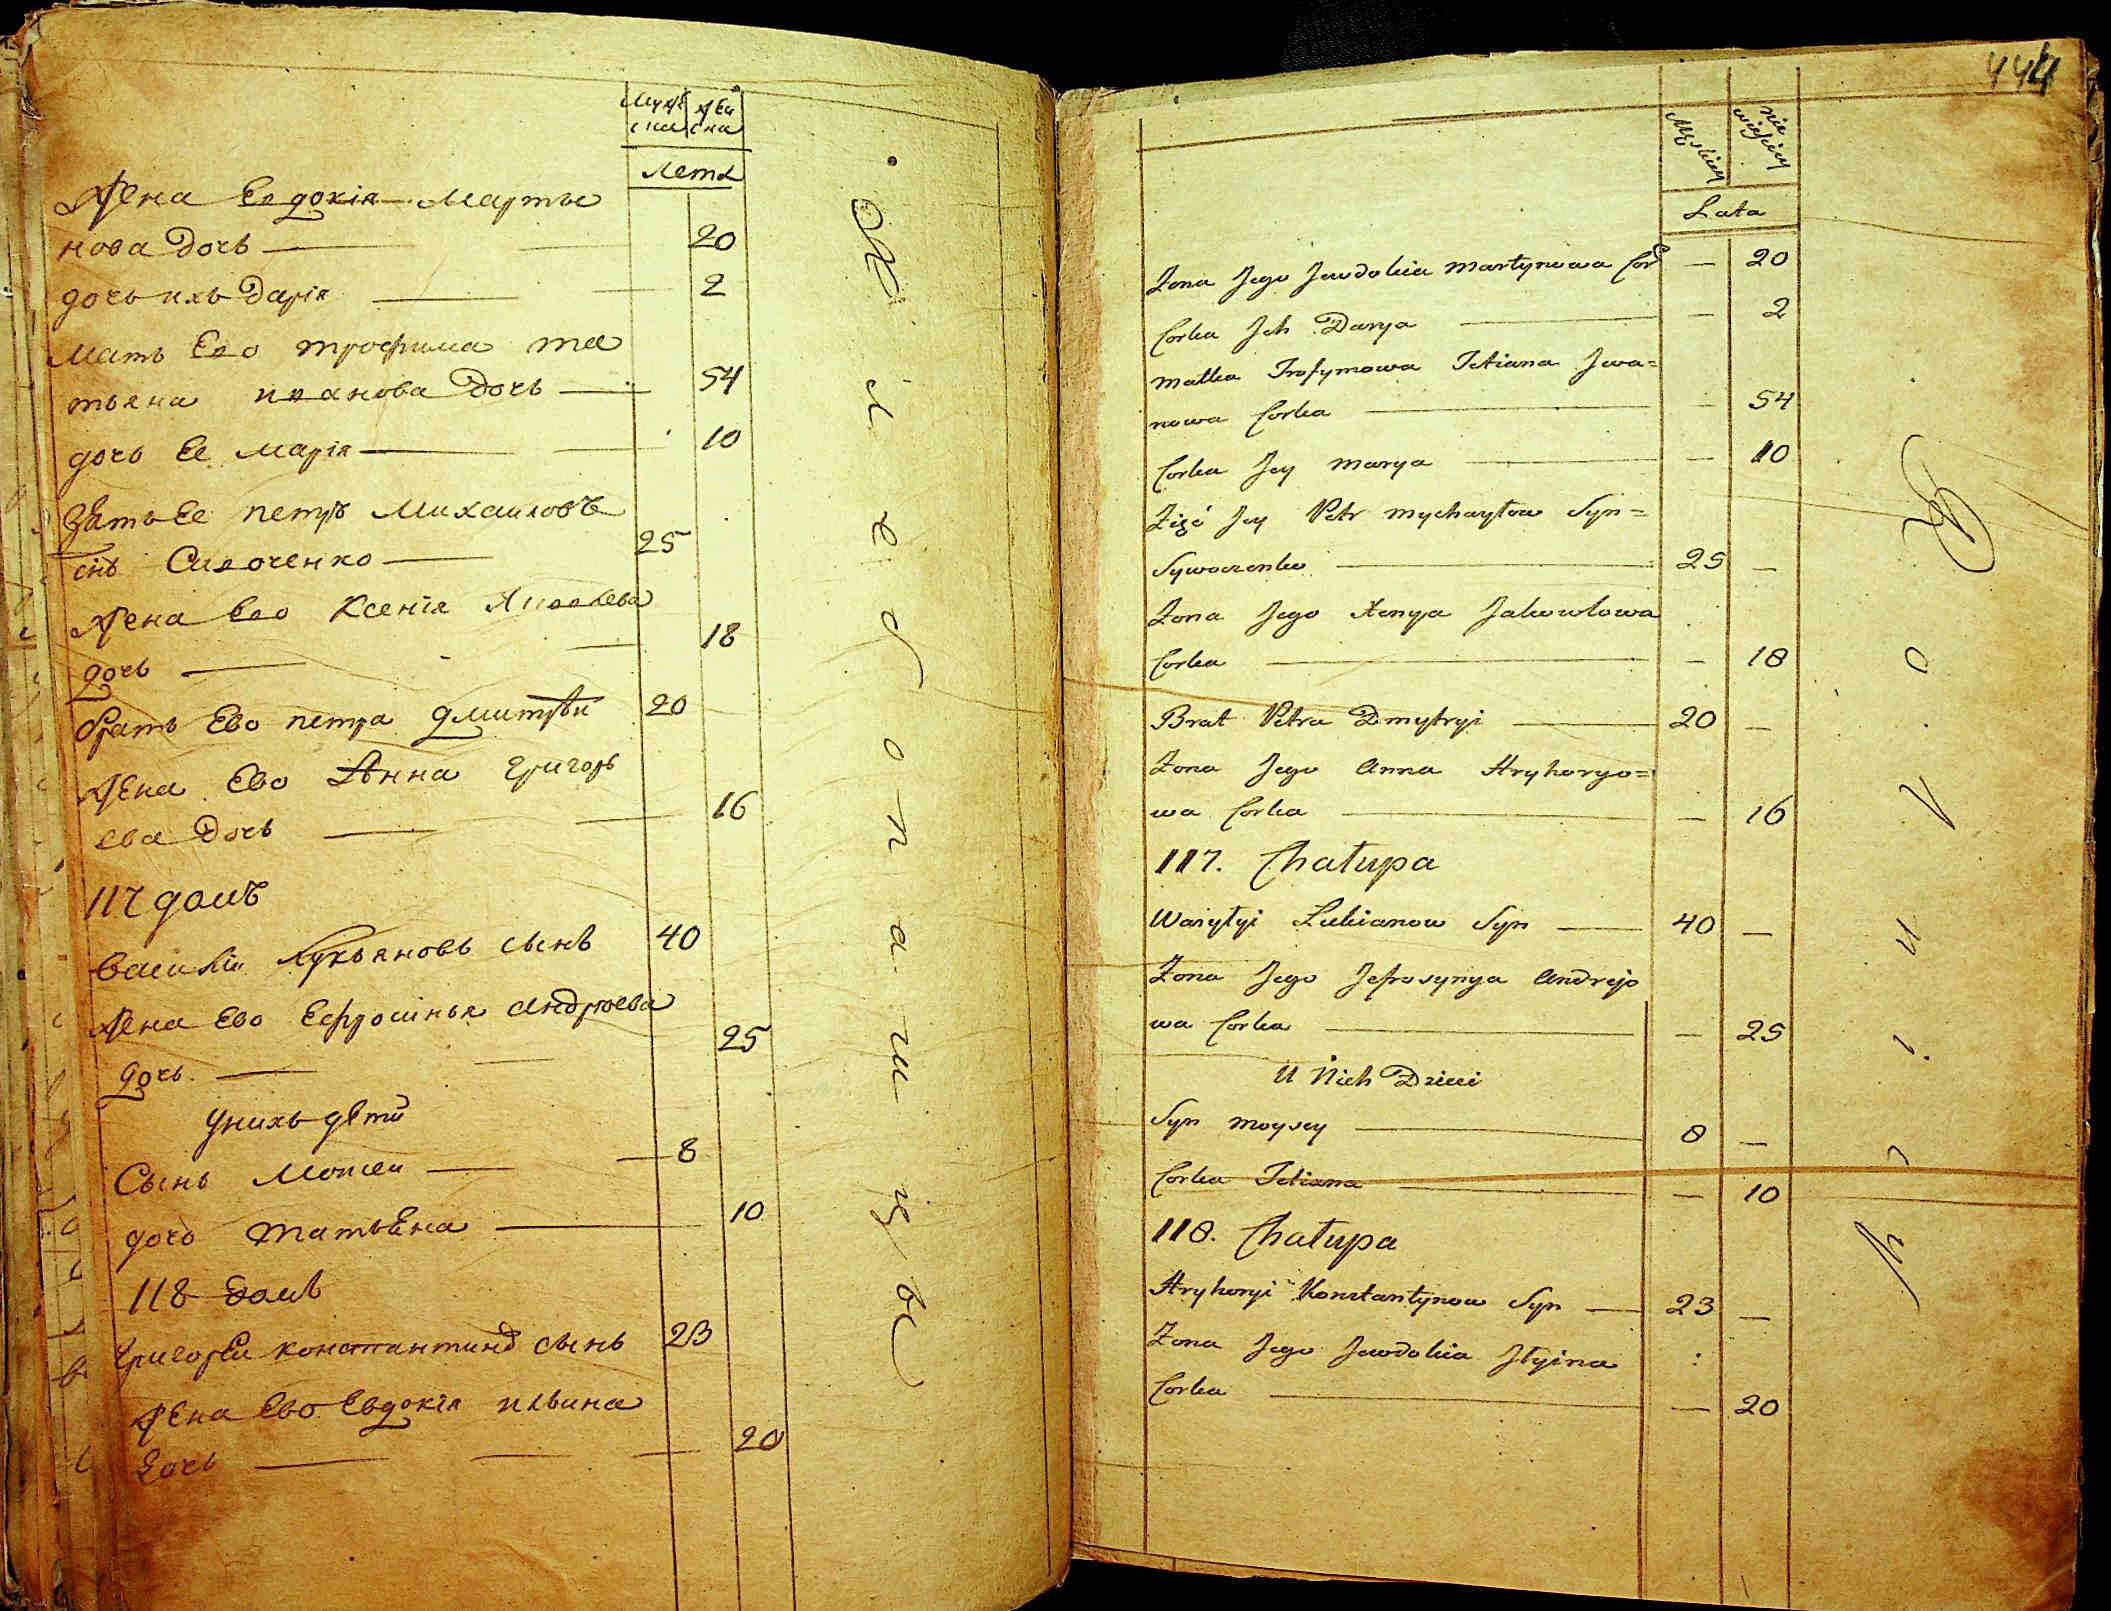 Муже
ска
Жен
ска
Лета
Жена Евдокія Марты
нова дочь 20
дочь ихъ Дарія 2
Мать Ево трофима та
тьяна иванова дочь 54
дочь Ее марія 10
Зять Ее петръ Михаиловъ
снъ Сивоченко 25
Жена Ево Ксенія Яковлева
дочь 18
братъ Ево петра дмитрѣи 20
Жена Ево Анна григорь
ева дочь 16
117 домъ
Василіи лукьяновъ сынъ 40
Жена Ево Ефросинья андреева
дочь 25
у нихъ дѣти
Сынъ Моисеи 8
дочь татьяна 10
118 домъ
григореи константиновъ сынъ 23
Жена Ево Евдокія ильина
дочь 20
Хлебопашцы
444
Męskiey
niewieściey
Lata
Żona Jego Jewdokia Martynowa Cor — 20
Corka Jch Darya — 2
Matka Trofymowa Tetiana Jwa=
nowa Corka — 54
Corka Jey Marya — 10
Zięć Jey Petr Mychayłow Syn=
Sywoczenko 25 —
Żona Jego Xenya Jakowlowa
Corka — 18
Brat Petra Dmytryi 20 —
Żona Jego Anna Hryhoryo=
wa Corka — 16
117. Chałupa
Wasylyi Łukianow Syn 40 —
Żona Jego Jefrosynya Andrejo
wa Corka — 25
U Nich Dzieci
Syn Moysey 8 —
Corka Tetiana — 10
118. Chałupa
Hryhoryi Konstantynow Syn 23 —
Żona Jego Jewdokia Jłyina
Corka — 20
Rolnicy